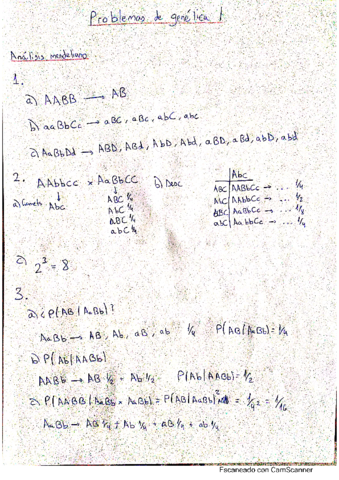 Problemas de genética 1
Análisis mendeliano
1.
a) AABB → AB
b) aaBbCc → aBC, aBc, abC, abc
c) AaBbDd → ABD, ABd, AbD, Abd, aBD, aBd, abD, abd
2. AAbbcc × AaBbCC
a) Gametos
Abc
ABC 1/4
AbC 1/4
aBC 1/4
abC 1/4
b) Desc
Abc
ABC AABbCc → ... 1/4
AbC AAbbCc → ...
aBC AaBbCc → ...
abC AabbCc → ... 1/4
c) 2³ = 8
3.
a) ¿P(AB|AaBb)?
AaBb → AB, Ab, aB, ab 1/4 P(AB|AaBb) = 1/4
b) P(Ab|AABb)
AABb → AB 1/2 + Ab 1/2 P(Ab|AABb) = 1/2
c) P(AABB|AaBb × AaBb) = P(AB|AaBb)² = 1/4² = 1/16
AaBb → AB 1/4 + Ab 1/4 + aB 1/4 + ab 1/4
Escaneado con CamScanner